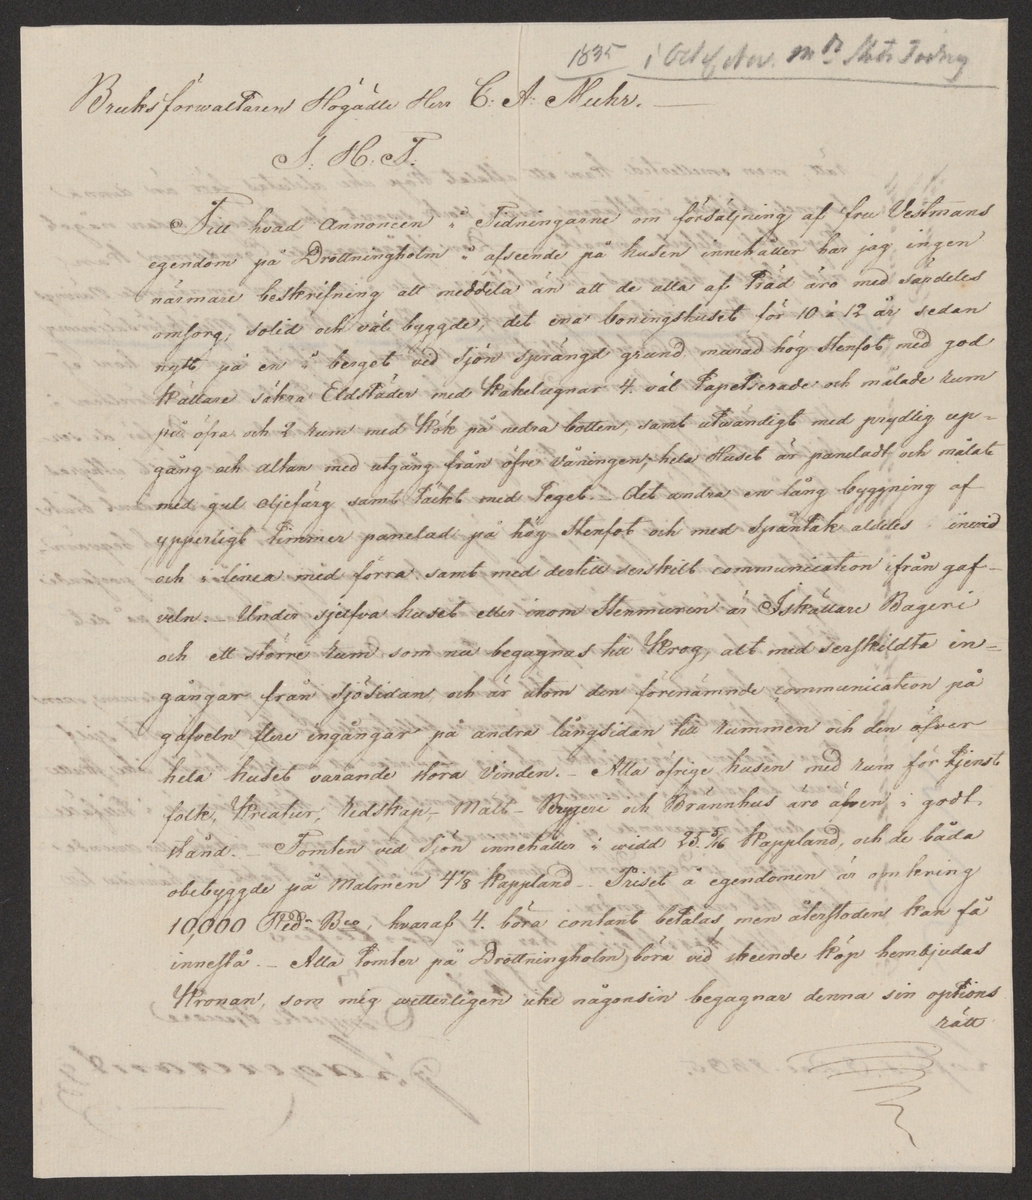 1835
Bruksförwaltaren Högädle Herr C. A. Muhr.
S. H. T.
Till hvad Annoncen i Tidningarne om försäljning af fru Vestmans
egendom på Drottningholm i afseende på husen innehåller har jag ingen
närmare beskrifning att meddela än att de alla af Träd äro med särdeles
omsorg, solid och väl byggde, det ena boningshuset för 10 à 12 år sedan
nytt på en i berget ved Sjön sprängd grund murad hög stenfot med god
källare säkra Eldstäder med Kakelugnar 4. väl Tapetserade och målade rum
på öfra och 2 rum med Kök på nedra botten, samt utvändigt med prydlig up-
gång och altan med utgång från öfre våningen, hela Huset är paneladt och målat
med gul oljefärg samt täckt med Tegel. - det andra en lång byggning af
ypperligt Timmer panelad på hög Stenfot och med Spåntak aldeles invid
och i linea med förra samt med dertill serskilt communication ifrån gaf-
veln. Under sjelfva huset eller inom Stenmuren är Iskällare Bageri
och ett större rum som nu begagnas till Krog, alt med serskildta in-
gångar från sjösidan och är utom den förenämnde communication på
gafveln flere ingångar på andra långsidan till rummen och den öfver
hela huset varande stora Vinden. - Alla öfrige husen med rum för tjenst
folk, Kreatur, Redskap, Malt- Bryggeri och Brännhus äro äfven i godt
stånd. - Tomten vid Sjön innehåller i widd 25 5/16 Kappland, och de båda
obebyggde på Malmen 4 1/8 Kappland - Priset å egendomen är omkring
10,000 Rd Bco, hvaraf 4. böra contant betalas, men återstoden kan få
innestå. - Alla Tomter på Drottningholm böra vid skeende köp hembjudas
Kronan, som mig witterligen icke någonsin begagnar denna sin options
rätt